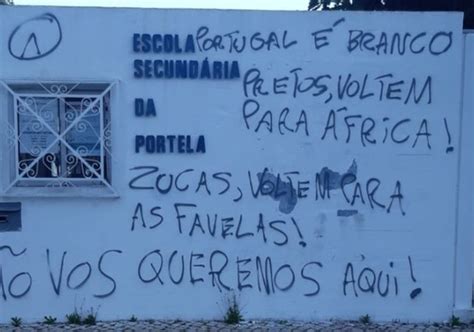 ESCOLA
SECUNDÁRIA
DA
PORTELA
PORTUGAL É BRANCO
PRETOS, VOLTEM
PARA ÁFRICA!
ZUCAS, VOLTEM PARA
AS FAVELAS!
ÃO VOS QUEREMOS AQUI!